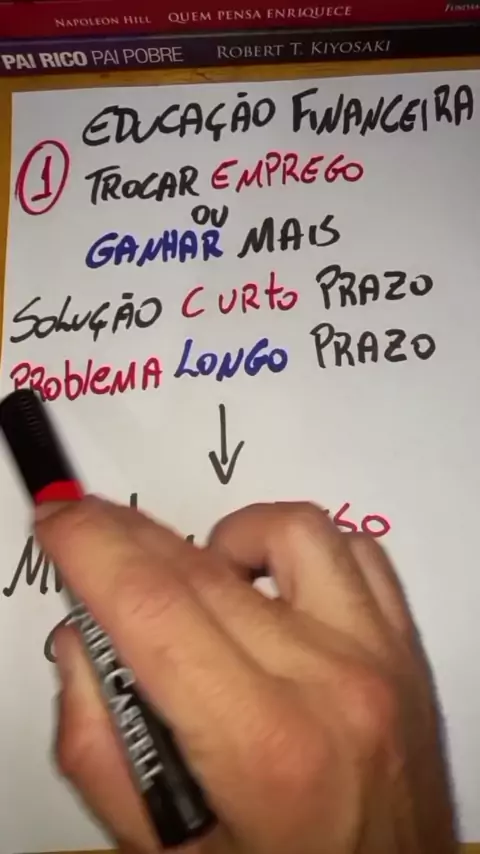 NAPOLEON HILL QUEM PENSA ENRIQUECE
PAI RICO PAI POBRE ROBERT T. KIYOSAKI
EDUCAÇÃO FINANCEIRA
1 TROCAR EMPREGO
OU
GANHAR MAIS
SOLUÇÃO CURTO PRAZO
PROblEMA LONGO PRAZO
FABER-CASTELL